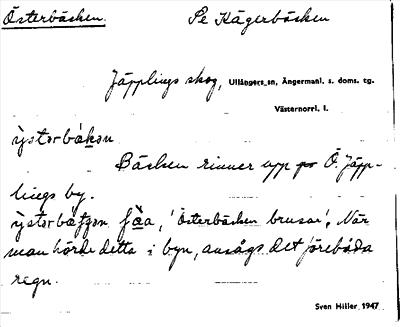 Österbäcken. Se Hägerbäcken
Jäpplings skog, Ullångers sn, Ångermanl. s. doms. tg.
Västernorrl. l.
Bäcken rinner upp på Ö Jäpp-
lings by.
'Österbäcken brusar'. När
man hörde detta i byn, ansågs det förebåda
regn.
Sven Hiller 1947